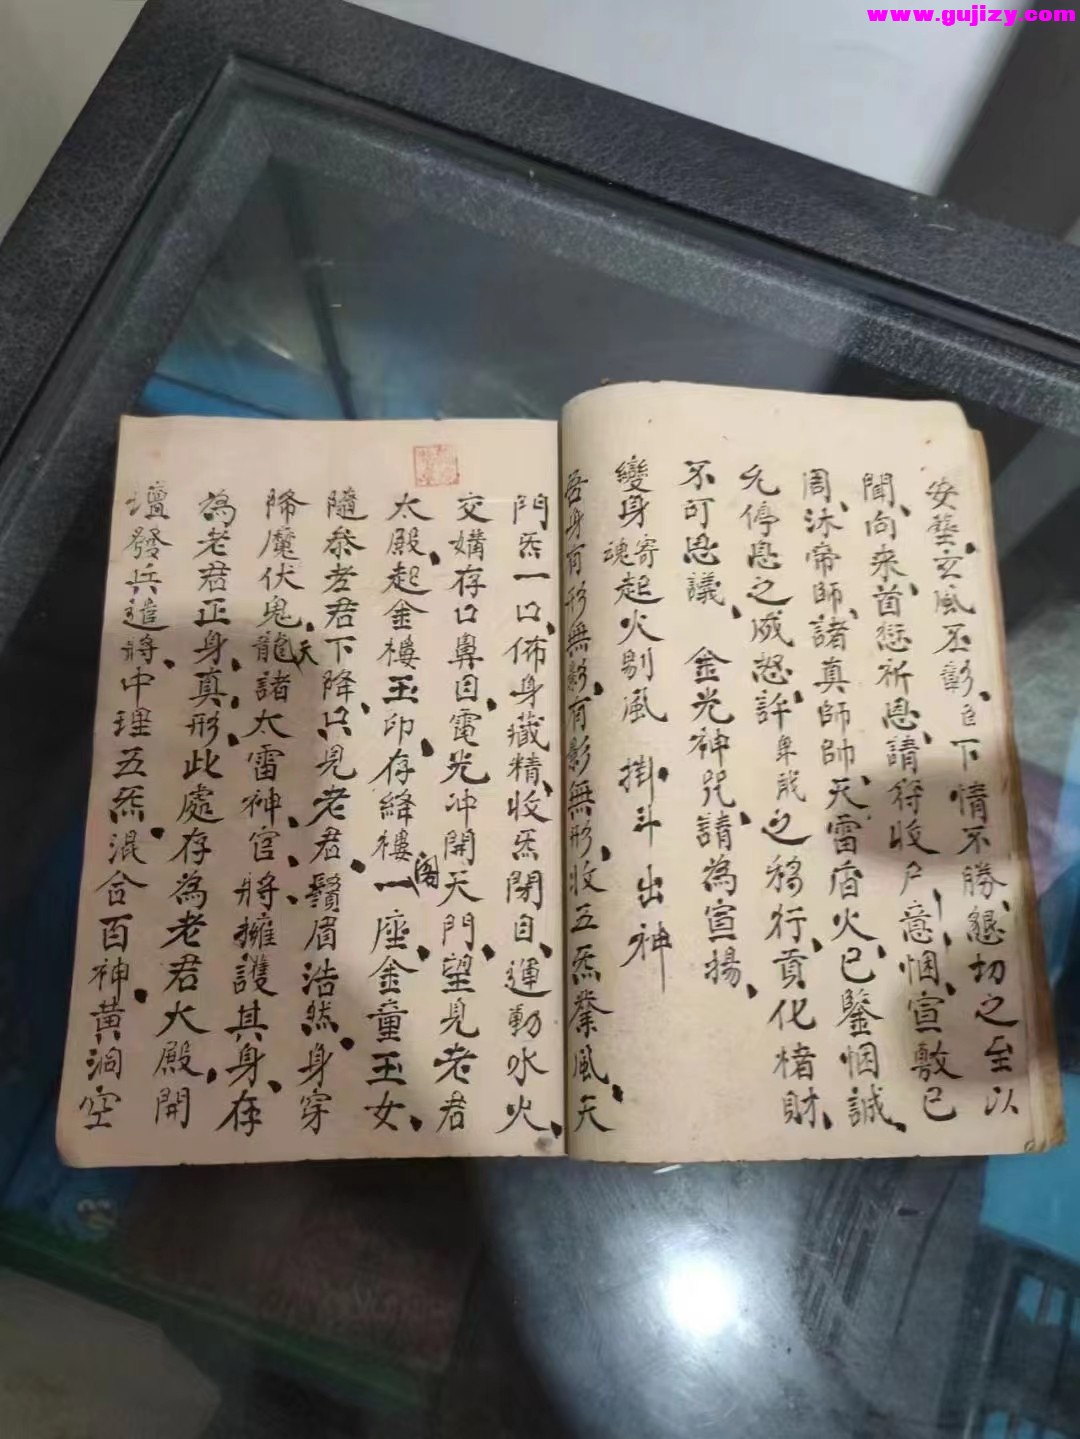 www.gujizy.com
安墊玄風丕彰臣下情不勝懇切之至以
聞向来首愆祈恩請符收户意悃宣敷已
周沐帝師諸真師帥天雷唇火已鑒悃誠
允停息之威怒許卑戝之移行貢化楮財
不可思議 金光神咒請為宣揚
變身寄魂起火剔風 掛斗出神
吾身有形無影有影無形收五炁叅風天
門炁一口佈身藏精收炁閉目運動水火
交媾存口鼻目電光冲開天門望見老君
太殿起金樓玉印存絳樓閣一座金童玉女
隨叅老君下降只見老君鬚眉浩然身穿
降魔伏鬼龍諸天太雷神官將擁護其身存
為老君正身真形此處存為老君大殿開
壇發兵進將中理五炁混合百神黃洞空